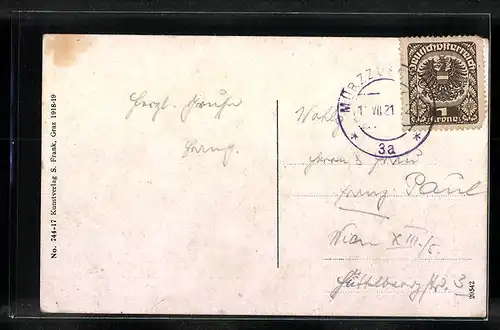 No. 744-17 Kunstverlag S. Frank, Graz 1918-19
Herzl. Grüße
Franz
MÜRZZU
VII 21
3a
Deutschösterreich
1
Krone
Wohlg
Herrn & Frau
Franz Paul
Wien XIII/5
Hüttelbergstr. 3
20542